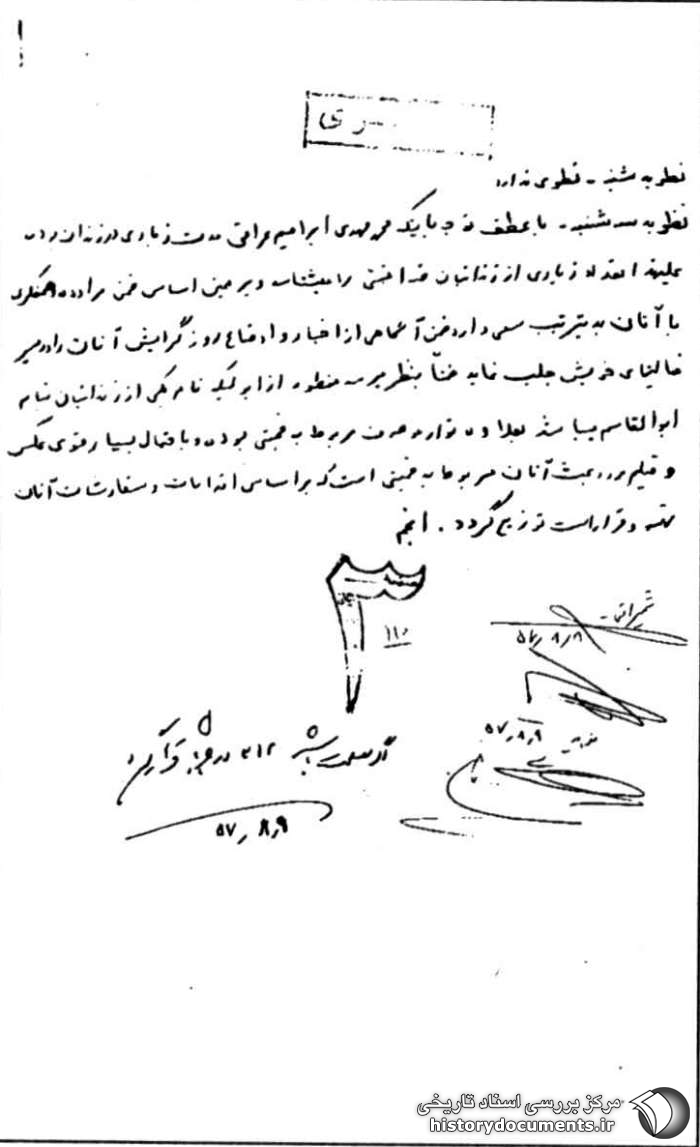 سری
نظریه شنبه - نظری ندارد
نظریه سه‌شنبه - با عطف به اینکه محمد مهدی ابراهیم عراقی مدت زیادی در زندان بوده
علیهذا تعداد زیادی از زندانیان ضد امنیتی را میشناسد و بر همین اساس ضمن مراوده و همفکری
با آنان به ترتیب سعی دارد ضمن آگاهی از اخبار و اوضاع روز گرایش آنان را در مسیر
فعالیتهای خویش جلب نماید ضمناً بنظر میرسد منظور از ابو یکی از زندانیان بنام
ابوالقاسم میباشد بعلاوه نوار مربوط به خمینی بوده و باحتمال بسیار قوی عکس
و فیلم مورد بحث آنان مربوط به خمینی است که بر اساس اقدامات و سفارشات آنان
تهیه و قرار است توزیع گردد. انجم
۳
۱۱۰
شمیرانی -
۵۷/۸/۸
۵۷/۸/۹
۳۱۲ در
۵۷/۸/۹
مرکز بررسی اسناد تاریخی
historydocuments.ir